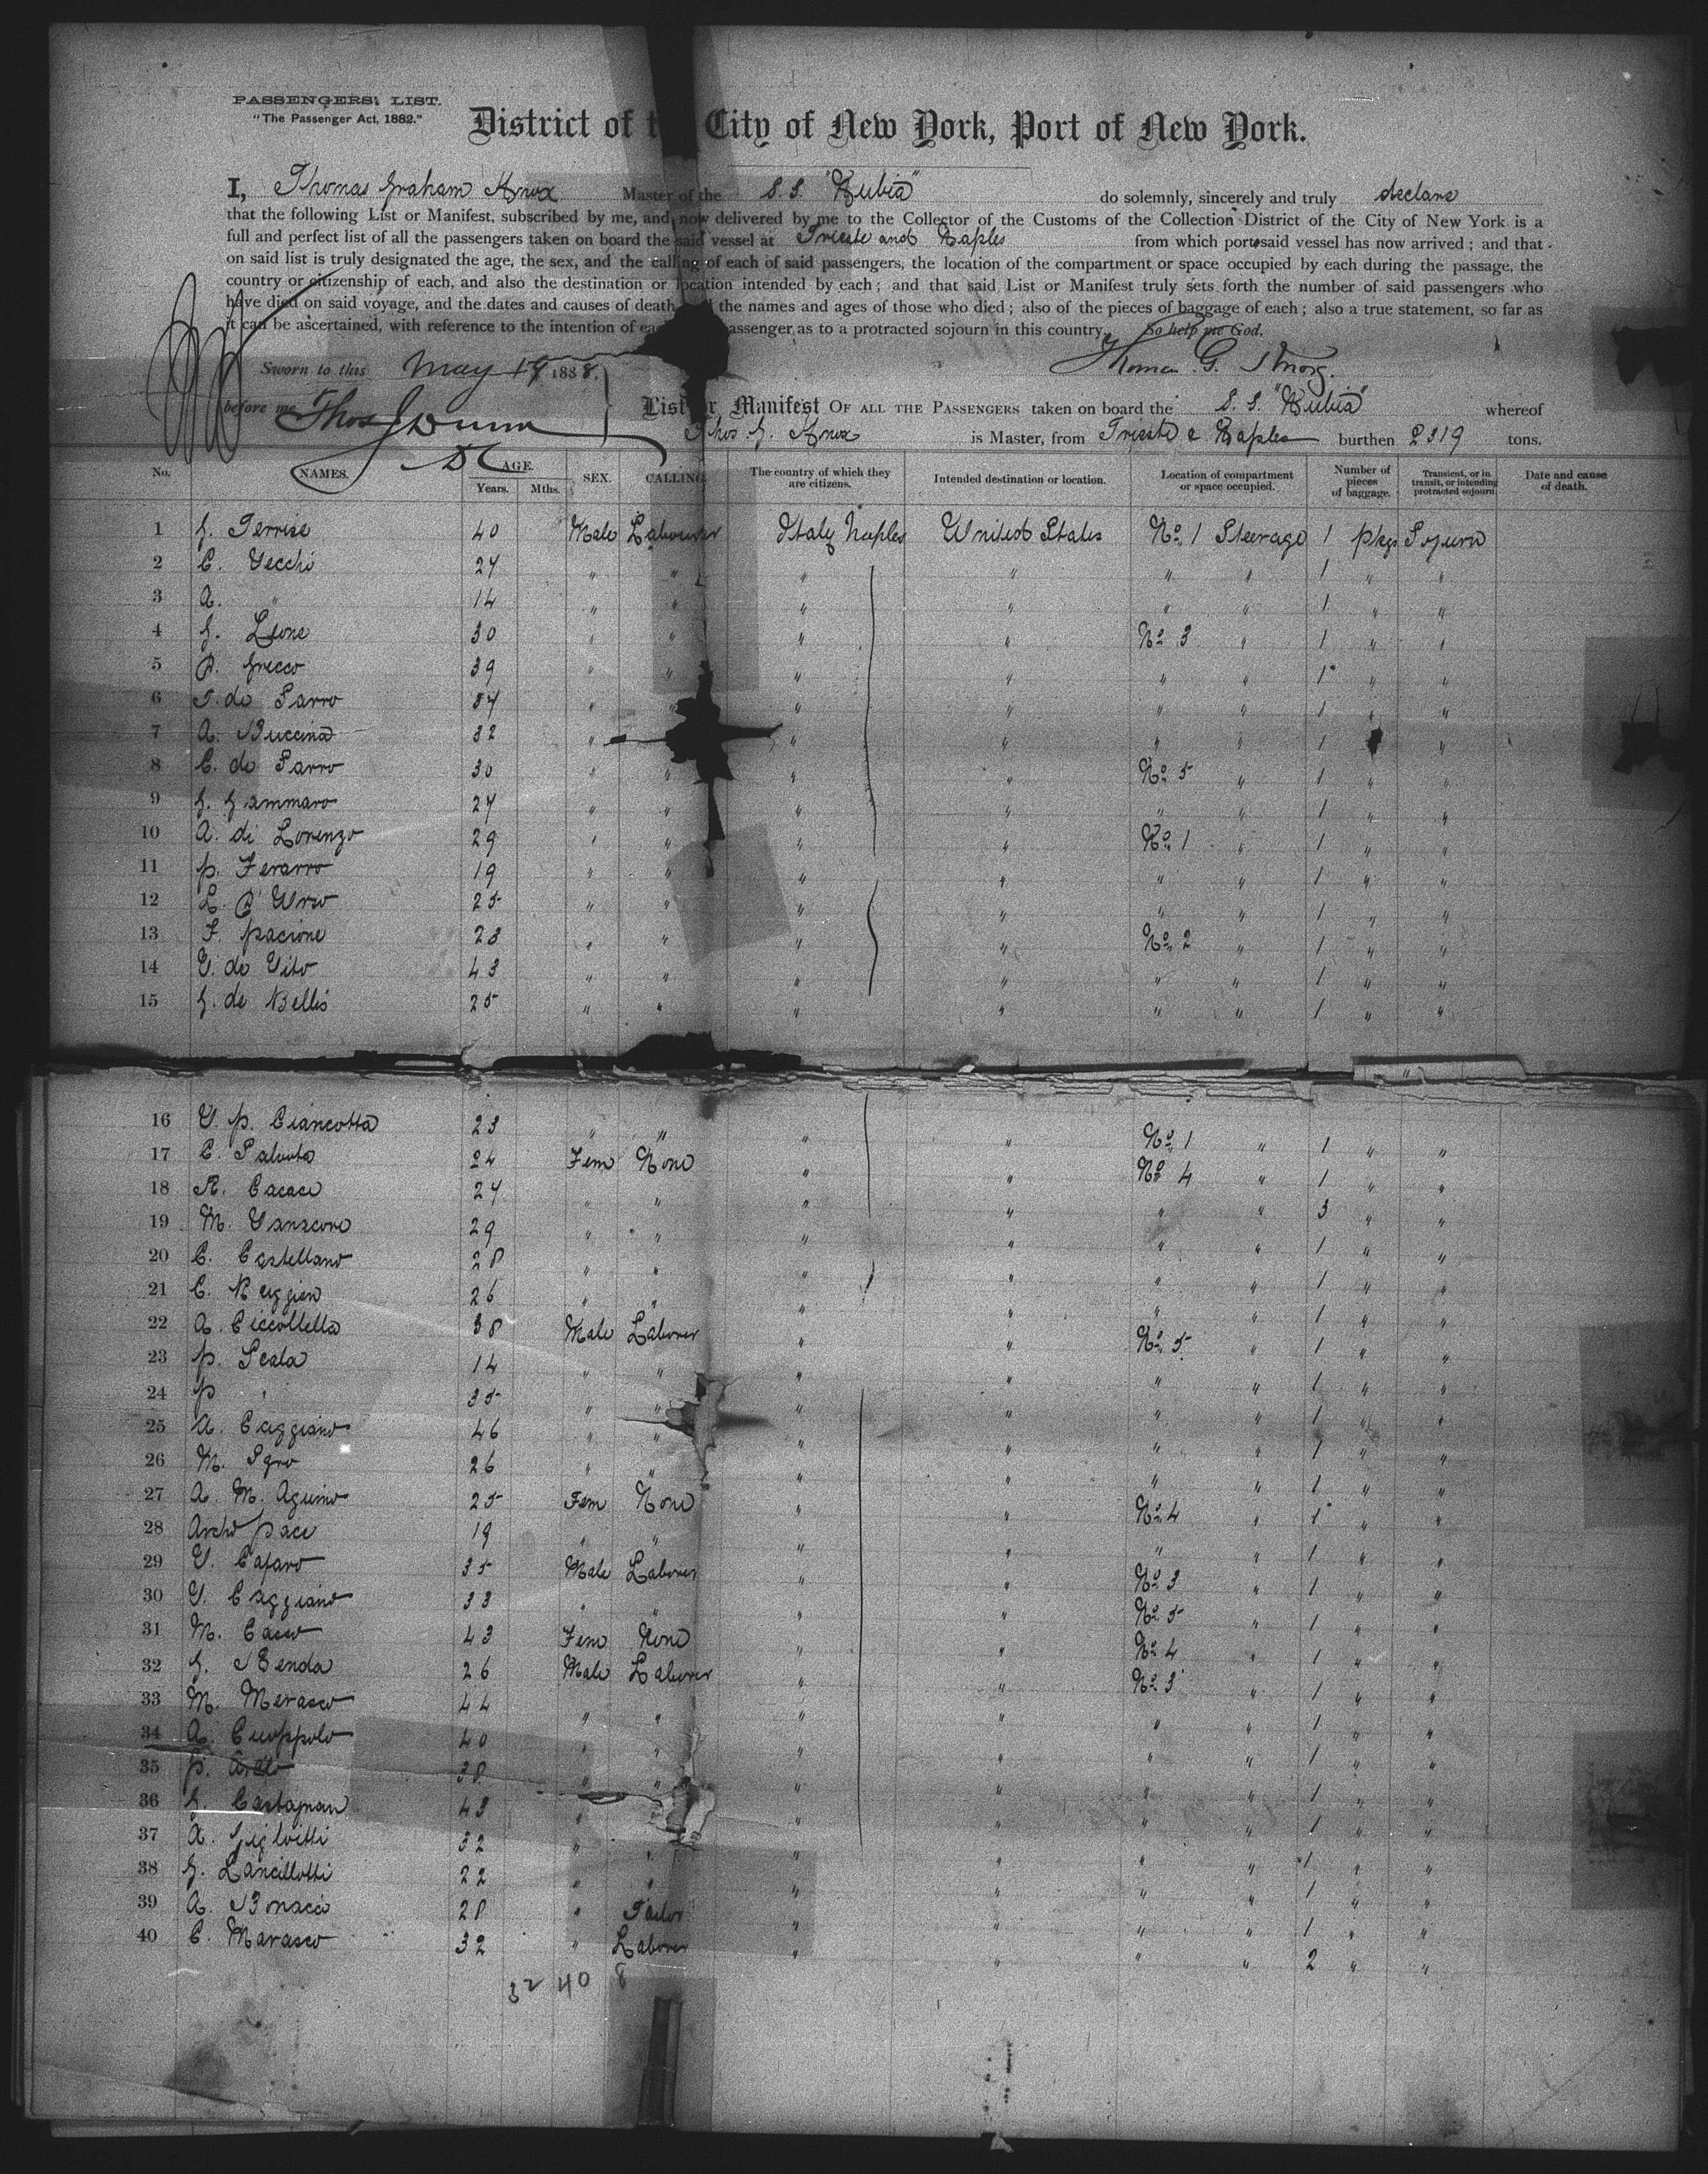 PASSENGERS' LIST.
"The Passenger Act, 1882."
District of t City of New York, Port of New York.
I, Thomas Graham Knox Master of the S.S. "Nubia" do solemnly, sincerely and truly declare
that the following List or Manifest, subscribed by me, and now delivered by me to the Collector of the Customs of the Collection District of the City of New York is a
full and perfect list of all the passengers taken on board the said vessel at Trieste and Naples from which ports said vessel has now arrived; and that
on said list is truly designated the age, the sex, and the calling of each of said passengers, the location of the compartment or space occupied by each during the passage, the
country or citizenship of each, and also the destination or location intended by each; and that said List or Manifest truly sets forth the number of said passengers who
have died on said voyage, and the dates and causes of death, the names and ages of those who died; also of the pieces of baggage of each; also a true statement, so far as
it can be ascertained, with reference to the intention of each passenger as to a protracted sojourn in this country. So help me God.
Sworn to this May 19 1888. Thomas G. Knox.
before me Thos J Dunn
List or Manifest OF ALL THE PASSENGERS taken on board the S.S. "Nubia" whereof
Thos G. Knox is Master, from Trieste & Naples burthen 2319 tons.
No. NAMES. AGE. Years. Mths. SEX. CALLING The country of which they are citizens. Intended destination or location. Location of compartment or space occupied. Number of pieces of baggage. Transient, or in transit, or intending protracted sojourn. Date and cause of death.
1 G. Terrise 40 Male Labourer Italy Naples United States No. 1 Steerage 1 pkgs Sojurn
2 C. Vecchi 24 " " " " " " 1 " "
3 A. " 14 " " " " " " 1 " "
4 G. Leone 30 " " " " No. 3 " 1 " "
5 D. Grecco 39 " " " " " " 1 " "
6 T. de Sarro 34 " " " " " " 1 " "
7 A. Buccina 32 " " " " " 1 "
8 C. de Sarro 30 " " " " No. 5 " 1 " "
9 G. Gammaro 24 " " " " " " 1 " "
10 A. di Lorenzo 29 " " " " No. 1 " 1 " "
11 P. Ferarro 19 " " " " " " 1 " "
12 L. D'Urso 25 " " " " " " 1 " "
13 F. Pacione 23 " " " " No. 2 " 1 " "
14 V. de Vito 43 " " " " " " 1 " "
15 G. de Bellis 25 " " " " " " 1 " "
16 V. P. Ciancotta 23 " " " " No. 1 " 1 " "
17 C. 24 Fem None " " No. 4 " 1 " "
18 R. Cacace 24 " " " " " " 3 " "
19 M. Vanacore 29 " " " " " " 1 " "
20 C. Castellano 28 " " " " " " 1 " "
21 C. 26 " " " " " " 1 " "
22 A. Ciccollella 38 Male Laborer " " No. 5 " 1 " "
23 P. Scala 14 " " " " " " 1 " "
24 P " 35 " " " " " " 1 " "
25 A. Caggiano 46 " " " " " " 1 " "
26 M. Sgro 26 " " " " " " 1 " "
27 A. M. Aguino 25 Fem None " " No. 4 " 1 " "
28 Pace 19 " " " " " " 1 " "
29 V. Cafaro 35 Male Laborer " " No. 3 " 1 " "
30 V. Caggiano 33 " " " " No. 5 " 1 " "
31 M. Casso 43 Fem None " " No. 4 " 1 " "
32 G. Benda 26 Male Laborer " " No. 3 " 1 " "
33 M. Merasco 44 " " " " " " 1 " "
34 A. Cuoppolo 40 " " " " " " 1 " "
35 P. 38 " " " " " " 1 " "
36 G. Castagnan 43 " " " " " 1 " "
37 A. Gigliotti 32 " " " " " " 1 " "
38 G. Lancillotti 22 " " " " " " 1 " "
39 A. Bonacci 28 " Tailor " " " " 1 " "
40 C. Marasco 32 " Laborer " " " " 2 " "
32 40 8